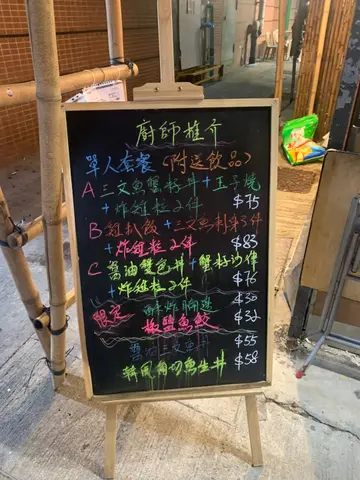 廚師推介
單人套餐(附送飲品)
A 三文魚蟹籽丼+玉子燒
+炸雞粒2件 $75
B 雞扒飯+三文魚刺身3件
+炸雞粒2件 $83
C 醬油雙色丼+蟹籽沙律
+炸雞粒2件 $76
限定 酥炸 $30
椒鹽魚鮫 $32
醬油三文魚丼 $55
韓風角切魚生丼 $58